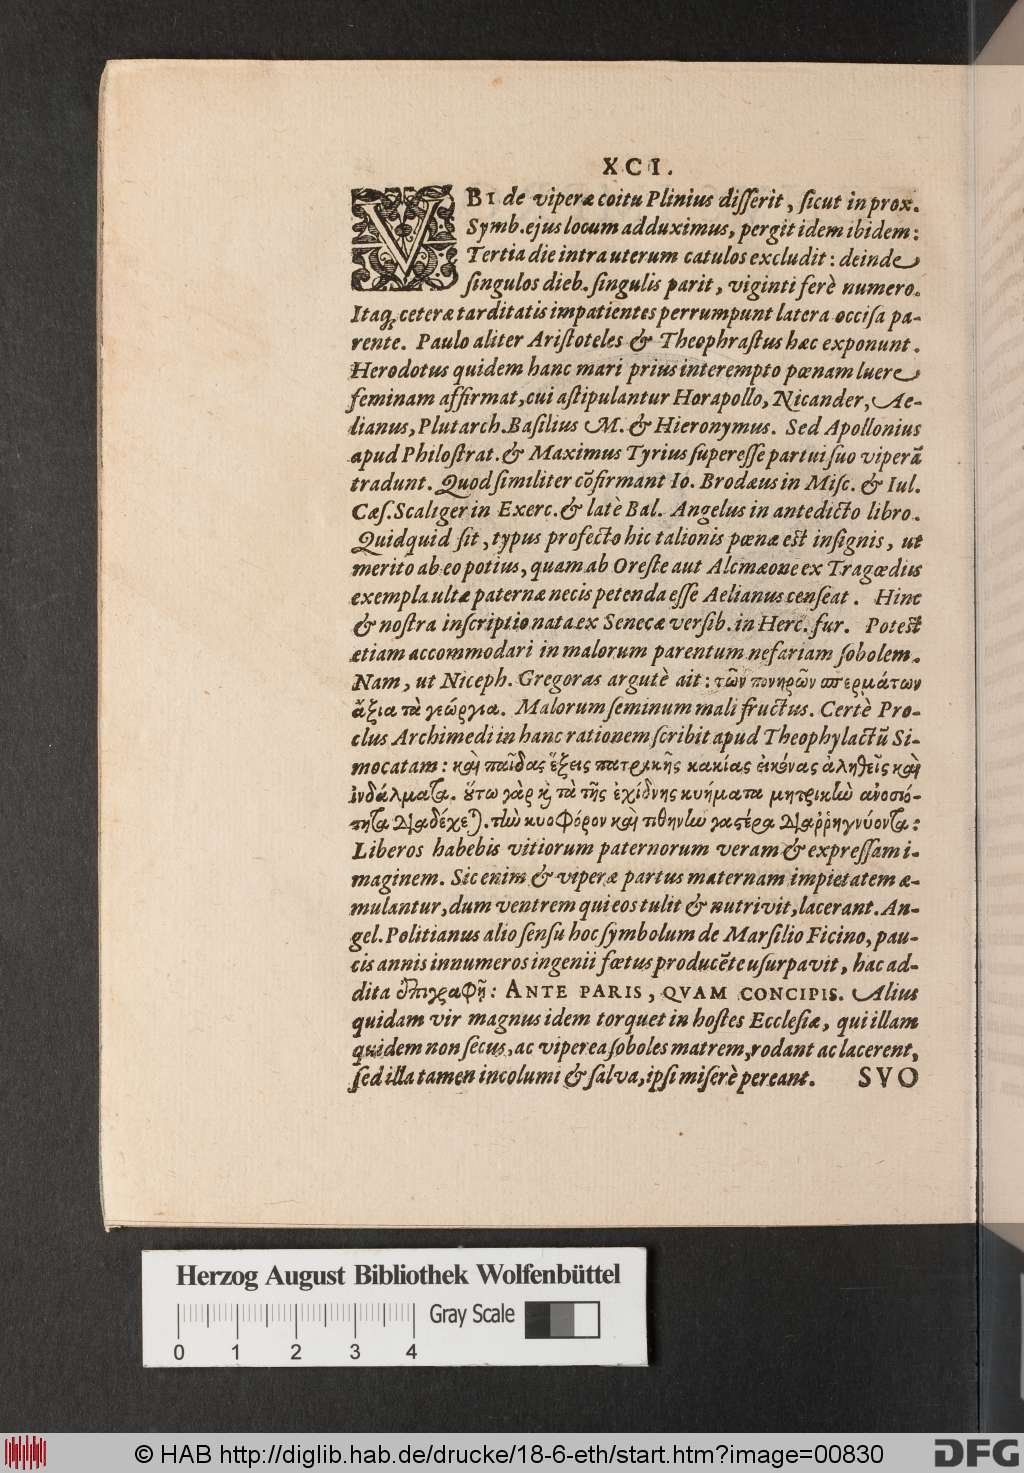 XCI.
VBI de viperæ coitu Plinius disserit, sicut in prox.
Symb. ejus locum adduximus, pergit idem ibidem:
Tertia die intra uterum catulos excludit: deinde
singulos dieb. singulis parit, viginti ferè numero.
Itaq; ceteræ tarditatis impatientes perrumpunt latera occisa pa-
rente. Paulo aliter Aristoteles & Theophrastus hæc exponunt.
Herodotus quidem hanc mari prius interempto pœnam luere
feminam affirmat, cui astipulantur Horapollo, Nicander, Ae-
lianus, Plutarch. Basilius M. & Hieronymus. Sed Apollonius
apud Philostrat. & Maximus Tyrius superesse partui suo viperā
tradunt. Quod similiter cōfirmant Io. Brodæus in Misc. & Iul.
Cæs. Scaliger in Exerc. & latè Bal. Angelus in antedicto libro.
Quidquid sit, typus profecto hic talionis pœnæ est insignis, ut
merito ab eo potius, quam ab Oreste aut Alcmæone ex Tragœdiis
exempla ultæ paternæ necis petenda esse Aelianus censeat. Hinc
& nostra inscriptio nata ex Senecæ versib. in Herc. fur. Potest
etiam accommodari in malorum parentum nefariam sobolem.
Nam, ut Niceph. Gregoras argutè ait: τῶν πονηρῶν σπερμάτων
ἄξια τὰ γεώργια. Malorum seminum mali fructus. Certè Pro-
clus Archimedi in hanc rationem scribit apud Theophylactū Si-
mocatam: καὶ παῖδας ἕξεις πατρικῆς κακίας εἰκόνας ἀληθεῖς καὶ
ἰνδάλματα. ὅτω γὰρ κ̀ τὰ τῆς ἐχίδνης κυήματα μητρικὼ ἀνοσιό-
τητα διαδέχε). τὼ κυοφόρον καὶ τιθηνὼ γαστέρα διαῤῥηγνύοντα:
Liberos habebis vitiorum paternorum veram & expressam i-
maginem. Sic enim & viperæ partus maternam impietatem æ-
mulantur, dum ventrem qui eos tulit & nutrivit, lacerant. An-
gel. Politianus alio sensu hoc symbolum de Marsilio Ficino, pau-
cis annis innumeros ingenii fœtus producēte usurpavit, hac ad-
dita ἐπιγραφῇ: ANTE PARIS, QVAM CONCIPIS. Alius
quidam vir magnus idem torquet in hostes Ecclesiæ, qui illam
quidem non secus, ac viperea soboles matrem, rodant ac lacerent,
sed illa tamen incolumi & salva, ipsi miserè pereant. SVO
Herzog August Bibliothek Wolfenbüttel
Gray Scale
0 1 2 3 4
© HAB http://diglib.hab.de/drucke/18-6-eth/start.htm?image=00830
DFG